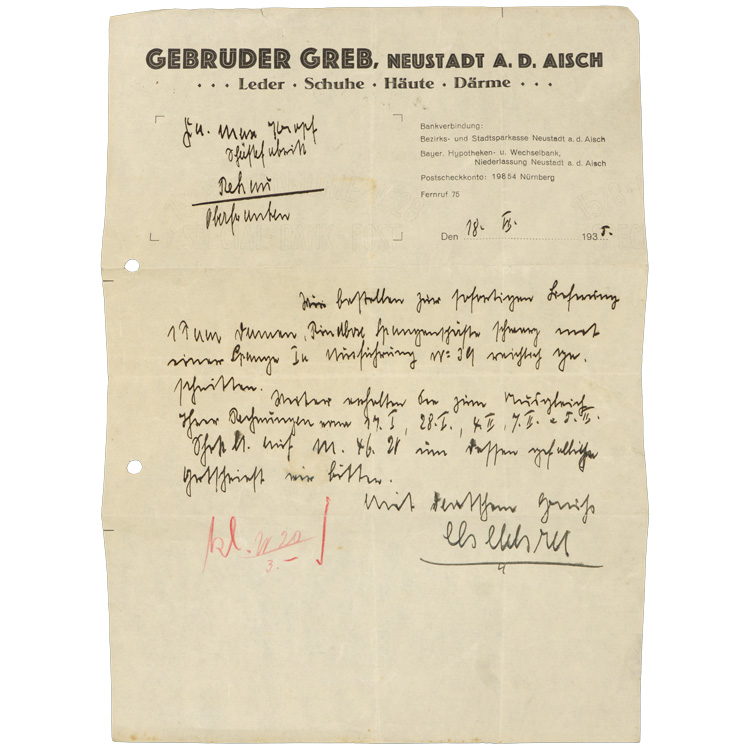 GEBRÜDER GREB, NEUSTADT A. D. AISCH
··· Leder · Schuhe · Häute · Därme ···
Fa. Max Knopf
Schuhfabrik
Rehau
Oberfranken
Bankverbindung:
Bezirks- und Stadtsparkasse Neustadt a. d. Aisch
Bayer. Hypotheken- u. Wechselbank,
Niederlassung Neustadt a. d. Aisch
Postscheckkonto: 19654 Nürnberg
Fernruf 75
Den 18. III. 1935.
Wir bestellen zur sofortigen Lieferung
1 Paar Damen, Rindbox Spangenschuhe schwarz mit
einer Spange Ia Ausführung No 39 reichlich ge-
schnitten.
Weiter erhalten Sie zum Ausgleich
Ihrer Rechnungen vom I, 28. I., 4. II, 7. II.
Scheck auf M. 46.20 um dessen gefällige
Gutschrift wir bitten.
Mit deutschem Gruß
3.–